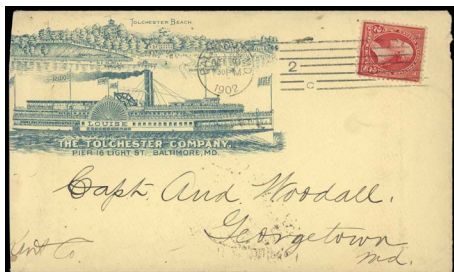 TOLCHESTER BEACH.
1902
2
C
LOUISE
THE TOLCHESTER COMPANY,
PIER 16 LIGHT ST. BALTIMORE, MD.
Capt. And. Woodall.
Georgetown
Kent Co. Md.